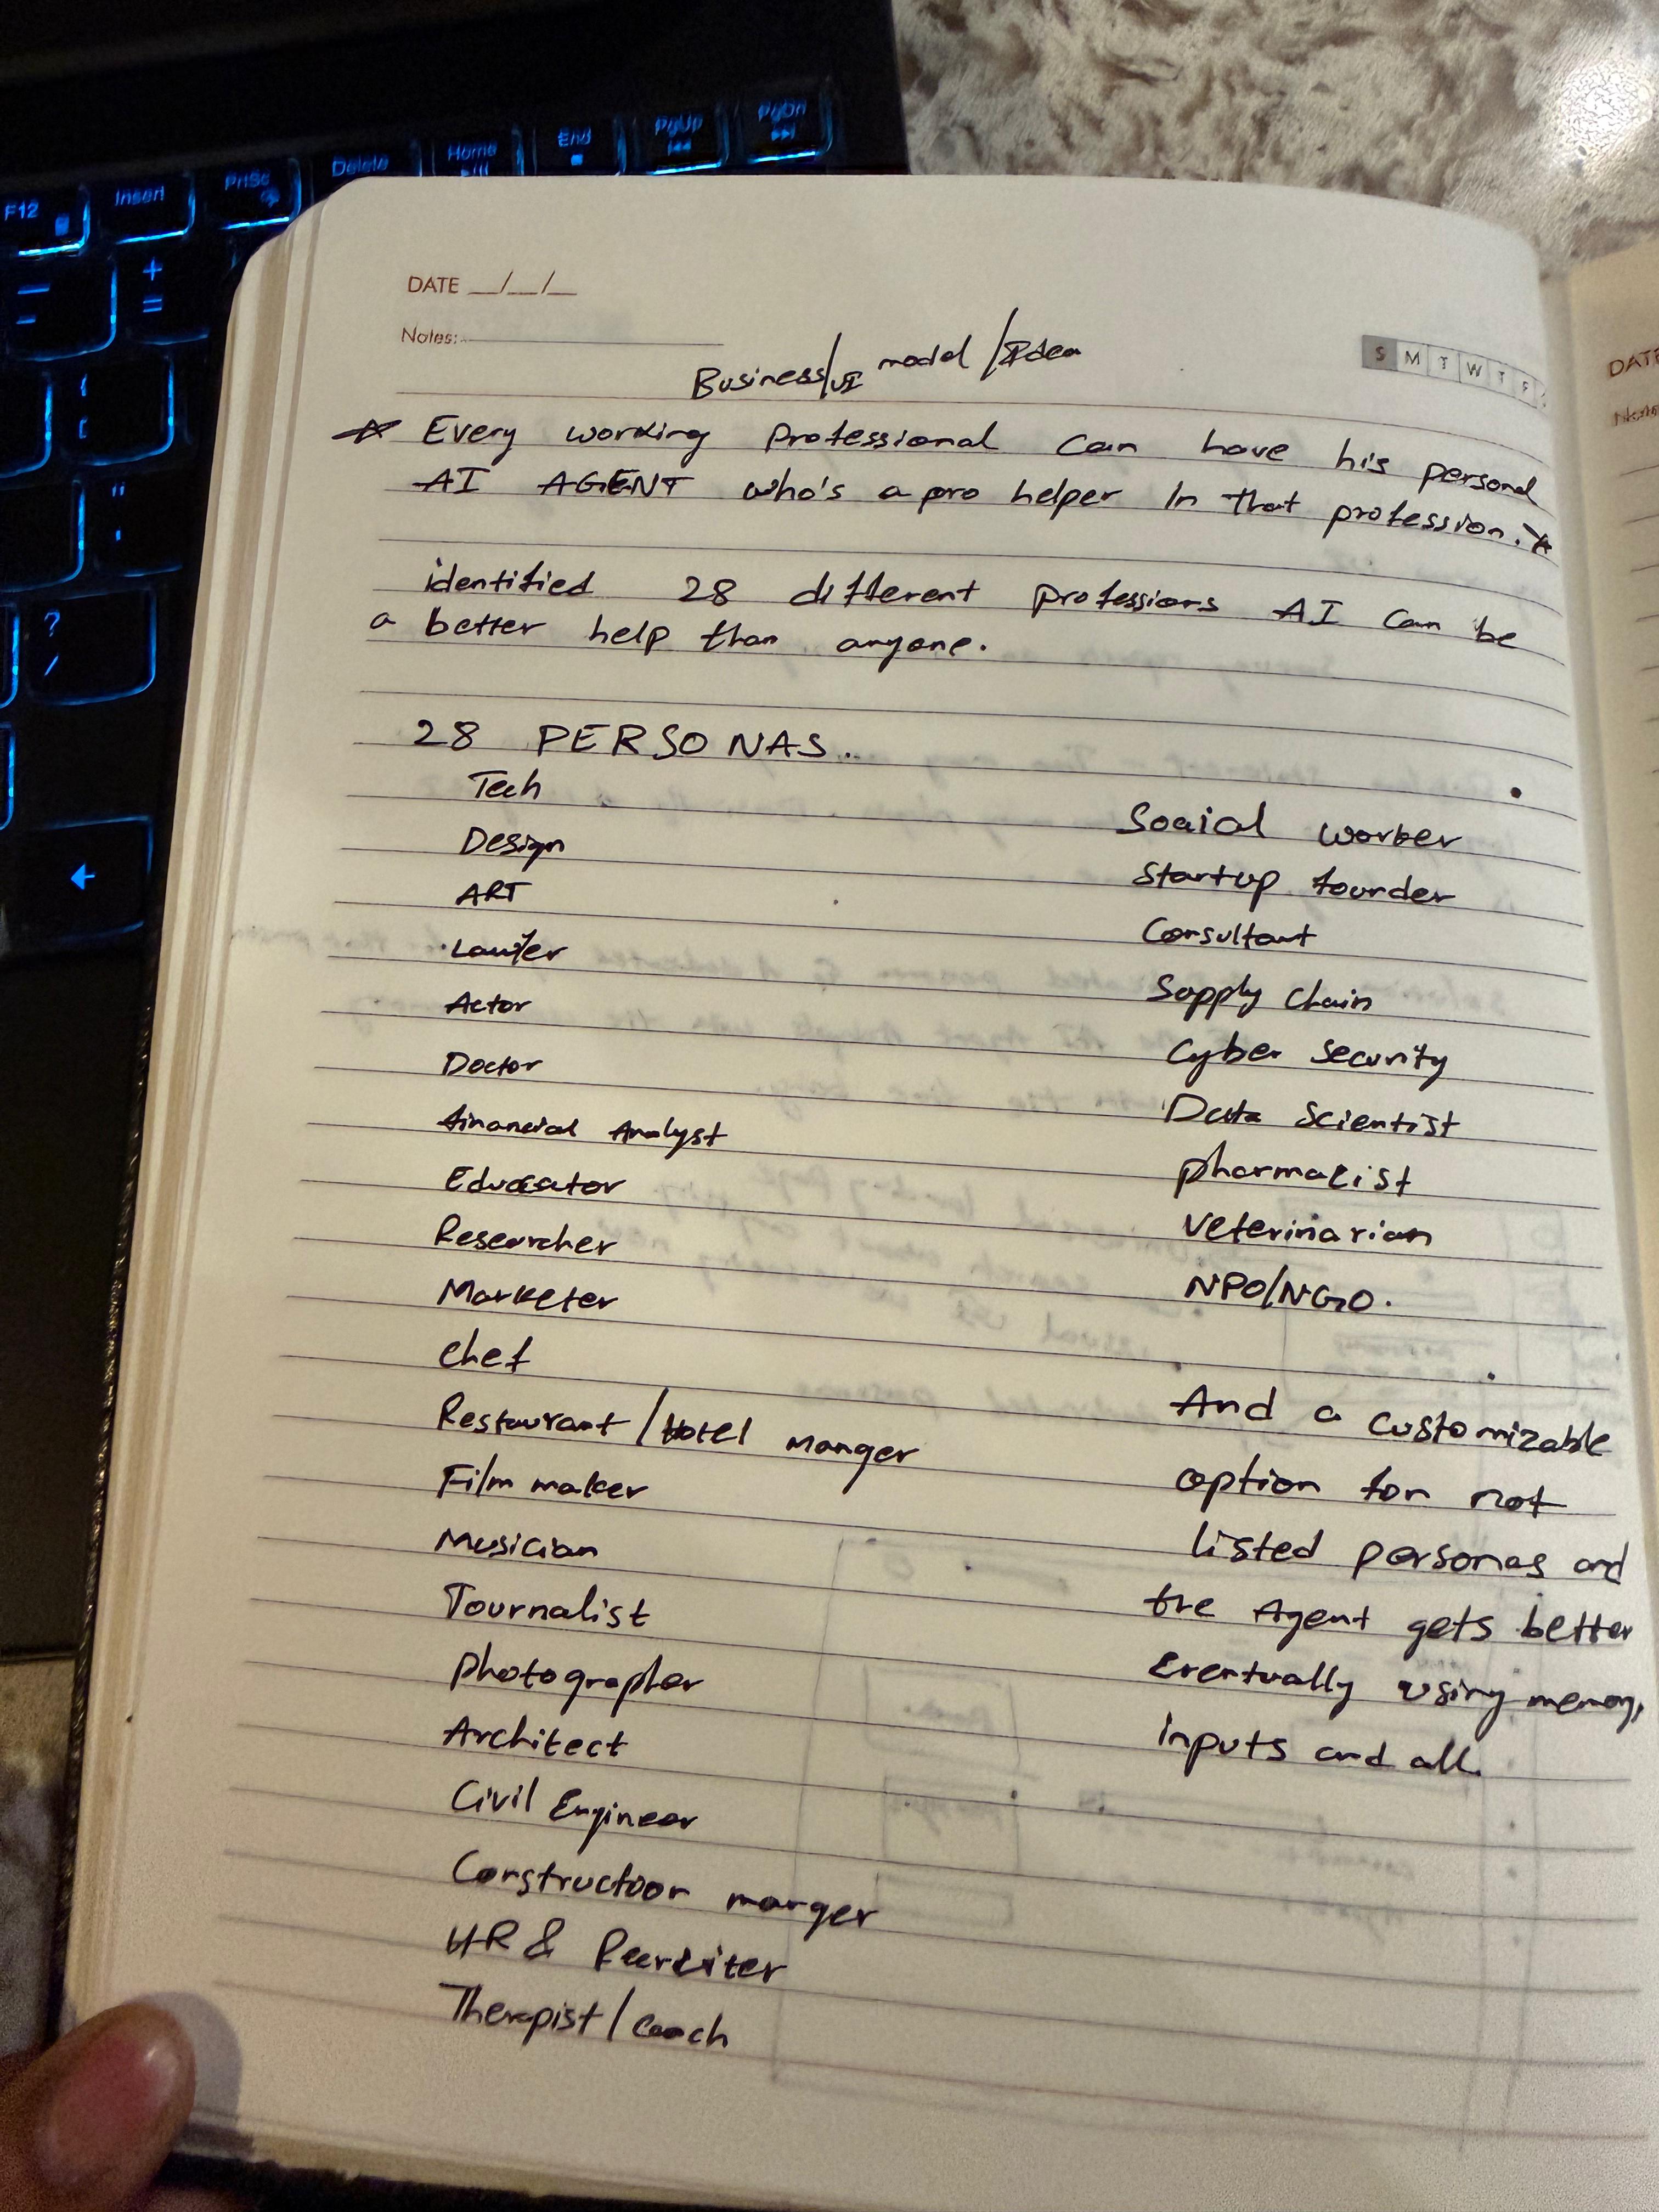 F12
Insert
PrtSc
Delete
Home
End
PgUp
PgDn
DATE __/__/__
Notes:
S M T W T F
Business/UI model / Idea
Every working professional can have his personal
AI AGENT who's a pro helper In that profession.
identified 28 different professions AI can be
a better help than anyone.
28 PERSONAS..
Tech
Design
ART
Lawyer
Actor
Doctor
financial Analyst
Educator
Researcher
Marketer
chef
Restaurant / Hotel Manger
Film maker
Musician
Journalist
photographer
Architect
Civil Engineer
Construction manger
HR & Recruiter
Therapist / Coach
Social worker
Startup founder
Consultant
Supply Chain
Cyber Security
Data Scientist
pharmacist
veterinarian
NPO/NGO.
And a customizable
option for not
listed personas and
the Agent gets better
Eventually using memory,
inputs and all.
DATE